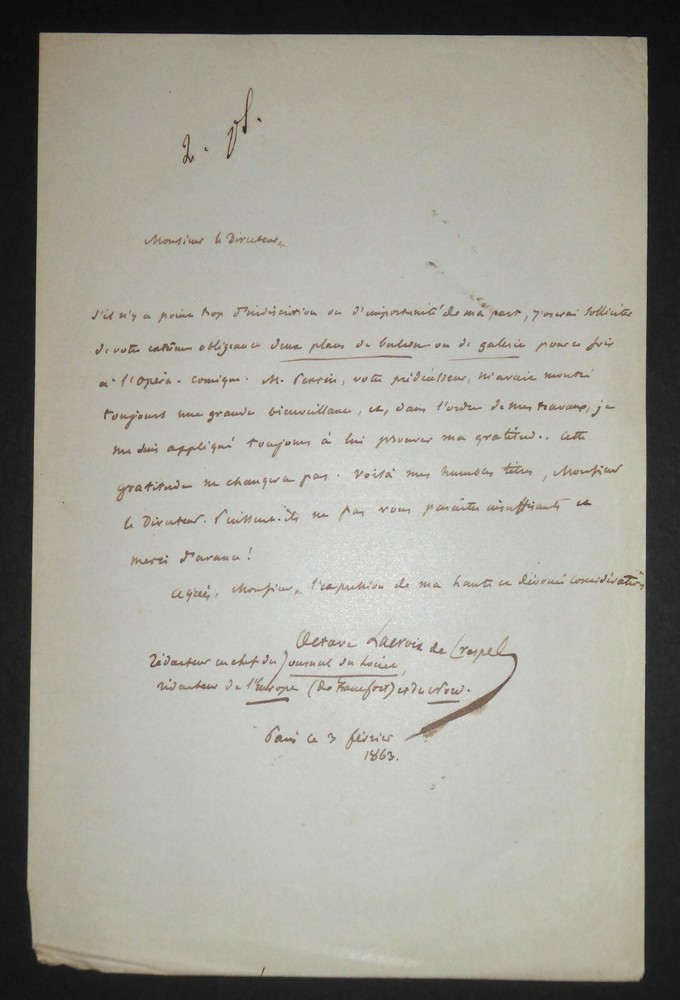 2. pl.
Monsieur le Directeur,
S'il n'y a point trop d'indiscrétion ou d'importunité de ma part, j'oserai solliciter
de votre extrême obligeance deux places de balcon ou de galerie pour ce soir
à l'Opéra-comique. M. Perrin, votre prédécesseur, m'avait montré
toujours une grande bienveillance, et, dans l'ordre de mes travaux, je
me suis appliqué toujours à lui prouver ma gratitude. Cette
gratitude ne changera pas. Voilà mes humbles titres, Monsieur
le Directeur. Puissent-ils ne pas vous paraître insuffisants et
merci d'avance!
Agréez, Monsieur, l'expression de ma haute et dévouée considération
Octave Lacroix de Crespel
rédacteur en chef du Journal du
rédacteur de l'Europe (de Francfort) et du Nord.
Paris ce 3 février
1863.